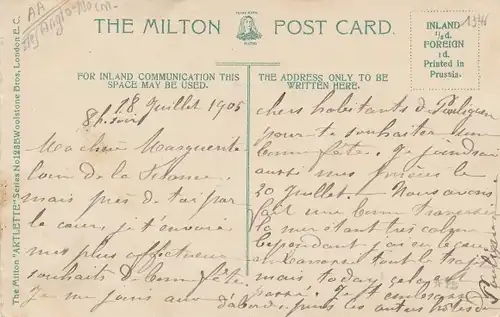 AA
THE MILTON POST CARD.
INLAND
½d.
FOREIGN
1d.
Printed in
Prussia.
FOR INLAND COMMUNICATION THIS
SPACE MAY BE USED.
THE ADDRESS ONLY TO BE
WRITTEN HERE.
The Milton "ARTLETTE" Series No. Woolstone Bros., London E.C.
18 Juillet 1905
8h. soir
Ma chère Marguerite
loin de la
mais près de toi par
le cœur, je t'envoie
mes plus affectueux
souhaits de bonne fête.
Je me joins aux
chers habitants de
pour te souhaiter une
bonne fête. Je joindrai
aussi mes prières le
20 Juillet. Nous avons
fait une bonne traversée
la mer étant très calme
Cependant j'ai eu
tout le trajet
mais today cela est
passé. Je t'embrasse
d'abord, puis les autres